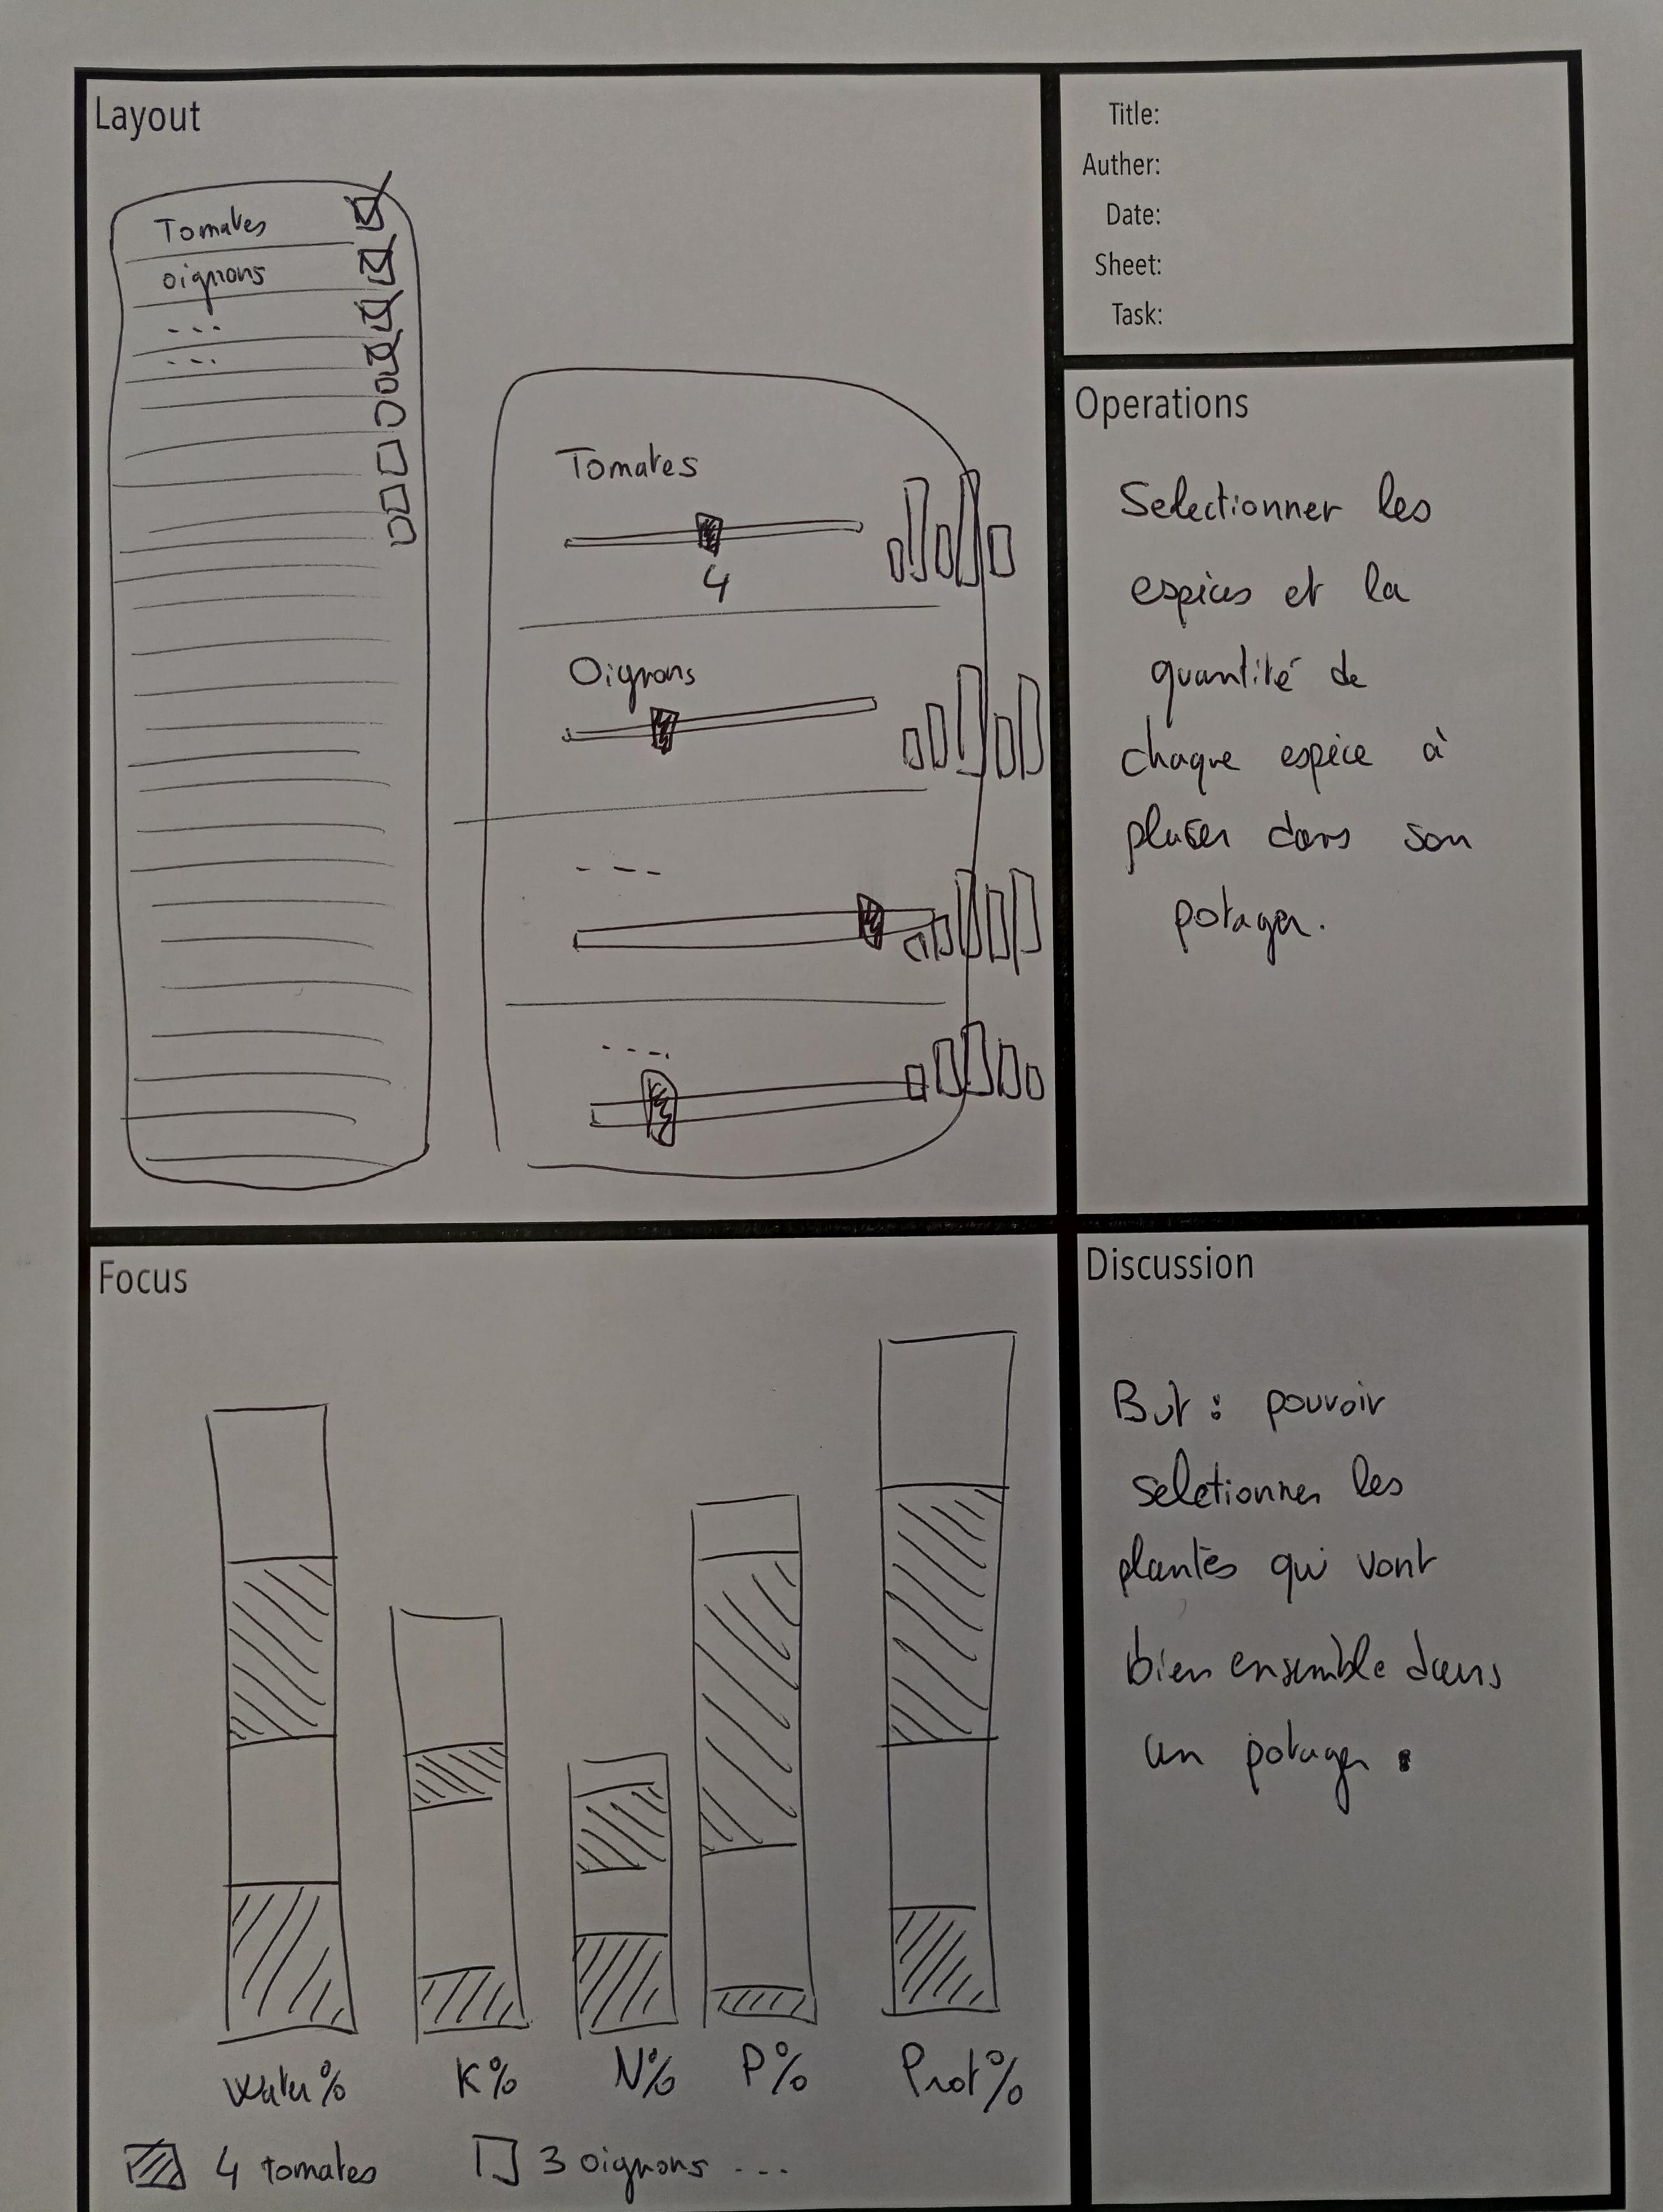 Layout
Tomates
oignons
...
...
Tomates
4
Oignons
----
----
Title:
Auther:
Date:
Sheet:
Task:
Operations
Selectionner les
espèces et la
quantité de
chaque espèce à
placer dans son
potager.
Focus
Water% K% N% P% Prot%
4 tomates 3 oignons ...
Discussion
But : pouvoir
seletionner les
plantes qui vont
bien ensemble dans
un potager.